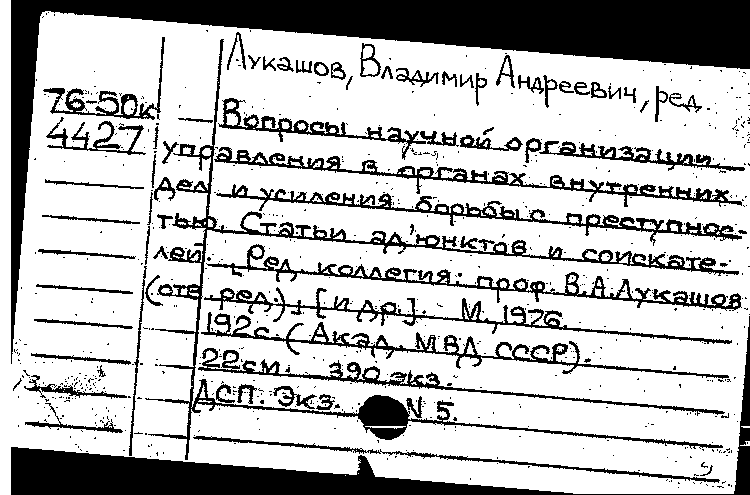 Лукашов, Владимир Андреевич, ред.
76-50к
4427
Вопросы научной организации
управления в органах внутренних
дел и усиления борьбы с преступнос-
тью. Статьи ад'юнктов и соискате-
лей. [Ред. коллегия: проф. В.А.Лукашов
(отв. ред.), [и др.]. М., 1976.
192с. (Акад. МВД СССР).
22см. 390 экз.
ДСП. Экз. N 5.